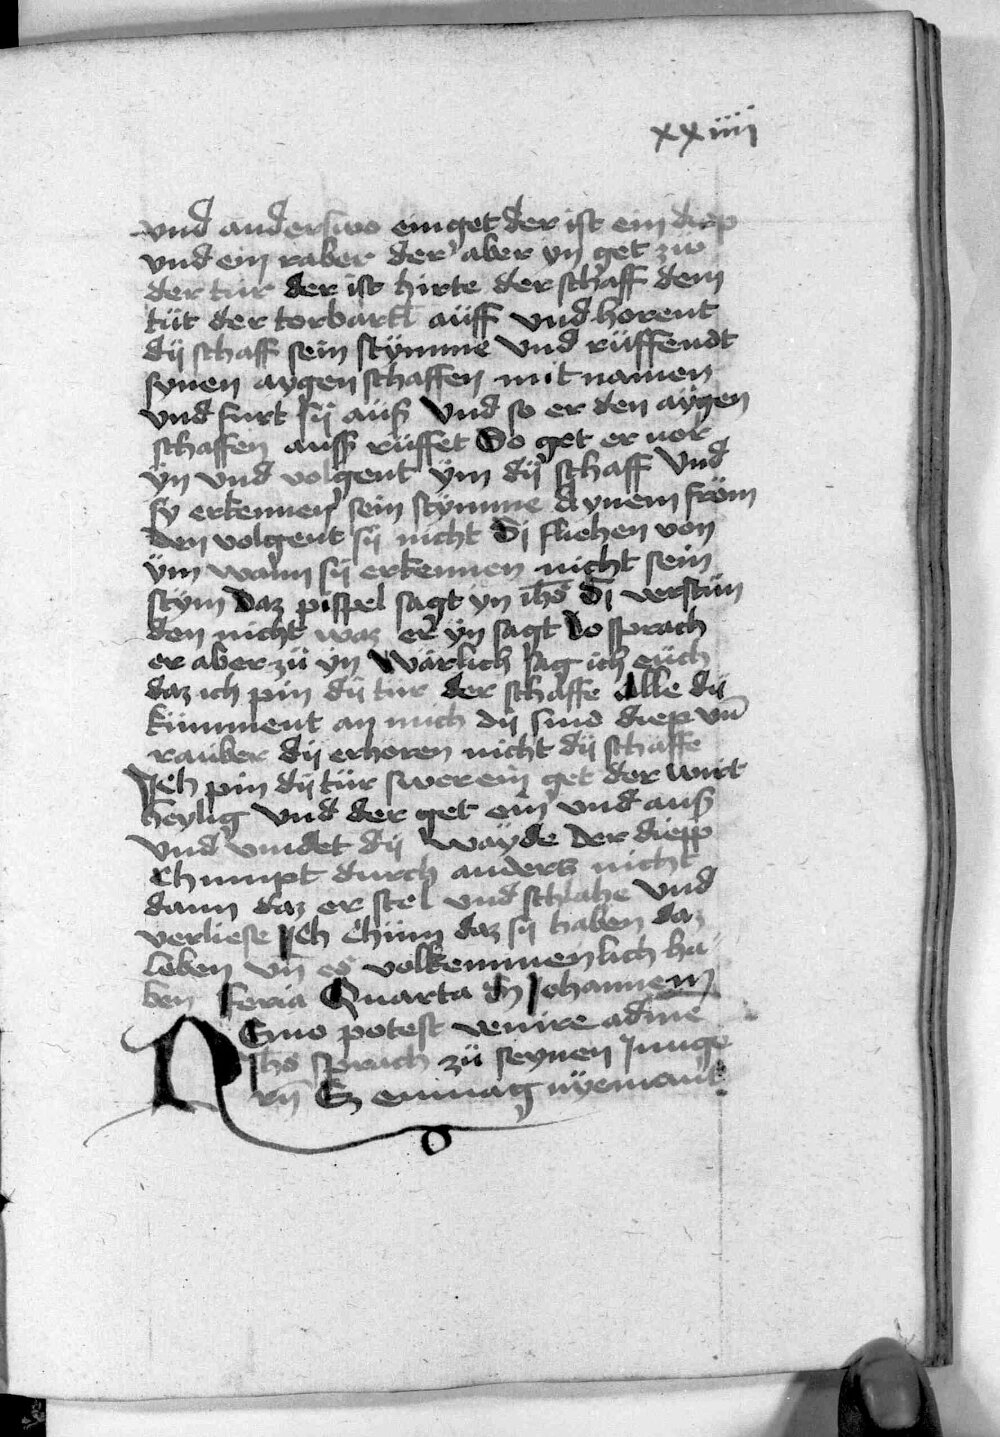 xxiiii
vnd anderswo einget der ist ein diep
vnd ein raber der aber yn get zw
der tur der ist hirte der schaff dem
tüt der torbartl aüff vnd horent
dij schaff sein stÿmme Vnd rüffendt
synen aygen schaffen mit namen
vnd furt sij aüß Vnd so er den aÿgen
schaffen auß rüffet So get er uor
ÿn vnd volgent ÿm dij schaff Vnd
sy erkennen sein stÿmme Aynem fröm
den volgent sij nicht Di fliehen von
ÿm wann sij erkennen nicht sein
stÿm Daz pispel sagt yn ihs Di verstün
den nicht waz er ÿn sagt Do sprach
er aber zü ÿn Wärlich sag ich eüch
daz ich pin dij tür der schaffe Alle dij
kümment an mich dij sind diep vn̄
rauber dij erhören nicht dij schaffe
Ich pin dij tür swer ein get der wirt
heylig Vnd der get ein vnd auß
vnd vindet dij wäyde Der diepp
chumpt durch anders nicht
dann daz er stel vnd schlahe Vnd
verliese Ich chüm daz sij haben daz
leben vn̄ es volkemmenlich ha
ben Feria Quarta In Johannem
NEmo potest venire ad me
Ihs sprach zü seynen Junge
rn̄ Es enmag nyemant